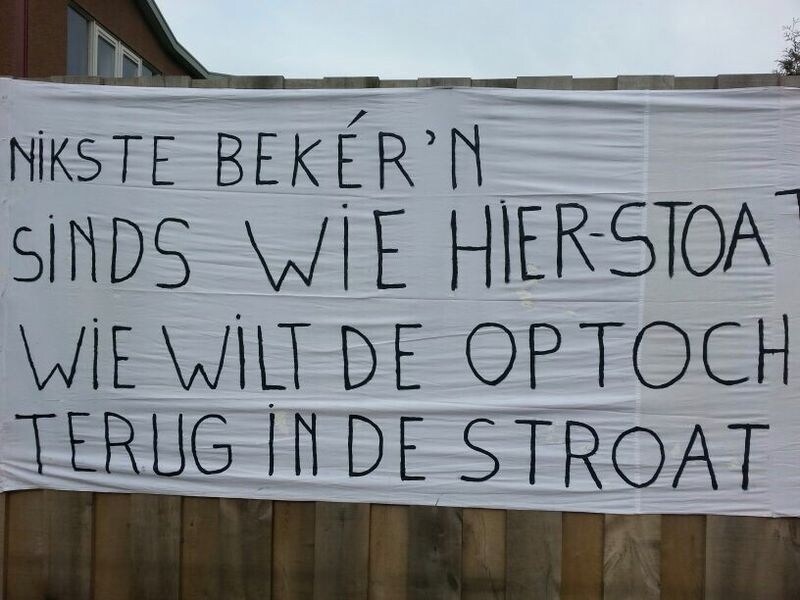 NIKS TE BEKÉR'N
SINDS WIE HIER-STOAT
WIE WILT DE OPTOCH
TERUG IN DE STROAT